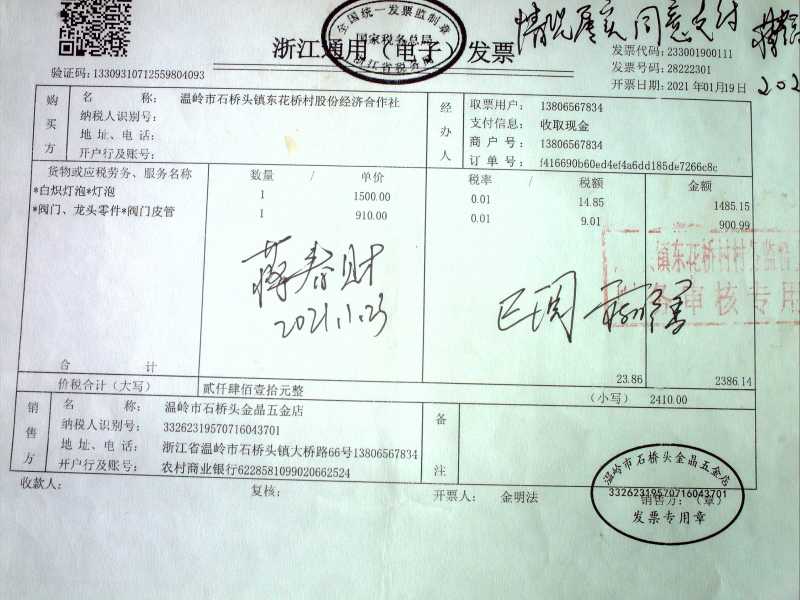 情况属实 同意支付
全国统一发票监制章
国家税务总局
浙江省税务局
浙江通用（电子）发票
发票代码：233001900111
发票号码：28222301
开票日期：2021年01月19日
验证码：13309310712559804093
购买方
名 称： 温岭市石桥头镇东花桥村股份经济合作社
纳税人识别号：
地 址、电 话：
开户行及账号：
经办人
取票用户： 13806567834
支付信息： 收取现金
商 户 号： 13806567834
订 单 号： f416690b60ed4ef4a6dd185de7266c8c
货物或应税劳务、服务名称 数量 / 单价 税率 / 税额 金额
*白炽灯泡*灯泡 1 1500.00 0.01 14.85 1485.15
*阀门、龙头零件*阀门皮管 1 910.00 0.01 9.01 900.99
镇东花桥村村务监督
财务审核专用
蒋春财
2021.1.23
合 计 23.86 2386.14
价税合计（大写） 贰仟肆佰壹拾元整 （小写） 2410.00
销售方
名 称： 温岭市石桥头金晶五金店
纳税人识别号： 33262319570716043701
地 址、电 话： 浙江省温岭市石桥头镇大桥路66号13806567834
开户行及账号： 农村商业银行6228581099020662524
备注
收款人： 复核： 开票人： 金明法 销售方：（章）
温岭市石桥头金晶五金店
33262319570716043701
发票专用章